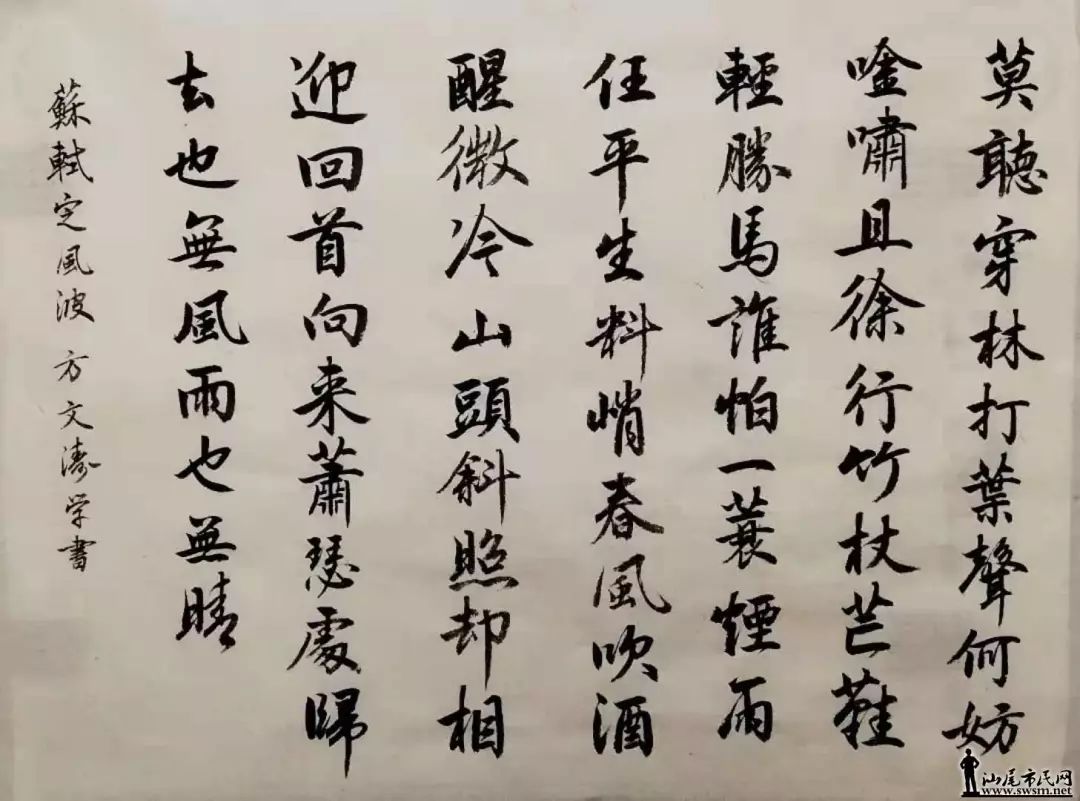 莫聽穿林打葉聲何妨
唫嘯且徐行竹杖芒鞋
輕勝馬誰怕一蓑煙雨
任平生料峭春風吹酒
醒微冷山頭斜照却相
迎回首向来蕭瑟處歸
去也無風雨也無晴
蘇軾定風波方文濤学書
汕尾市民网
www.swsm.net